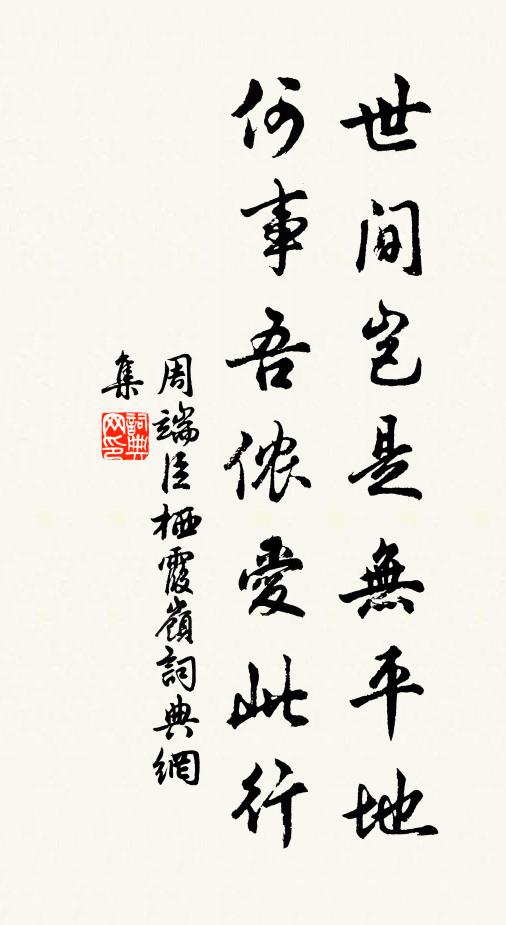 世間豈是無平地
何事吾儂愛此行
周端臣栖霞嶺詞典網
集
詞典
网印